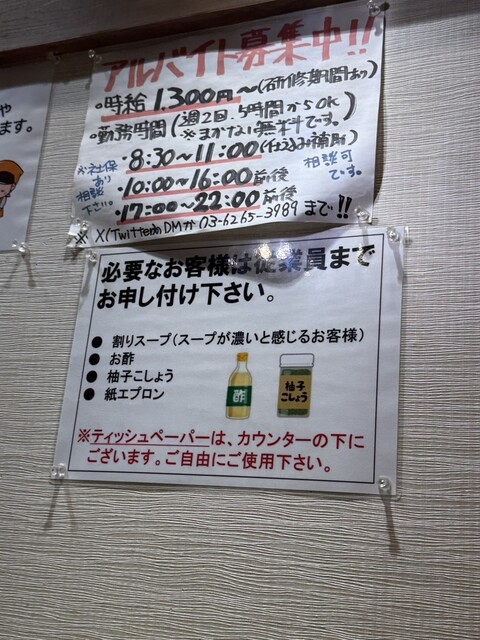 や
ます。
アルバイト募集中!!
・時給 1.300円〜(研修期間あり)
・勤務時間(週2回、5時間からOK)
※まかない無料です。
・8:30〜11:00(仕込み補助)
・10:00〜16:00前後
・17:00〜22:00前後
※社保
あり
相談
下さい。
相談可
です。
※X(TwitterのDMか03-6265-3989まで!!
必要なお客様は従業員まで
お申し付け下さい。
● 割りスープ(スープが濃いと感じるお客様)
● お酢
● 柚子こしょう
● 紙エプロン
酢
柚子
こしょう
※ティッシュペーパーは、カウンターの下に
ございます。ご自由にご使用下さい。